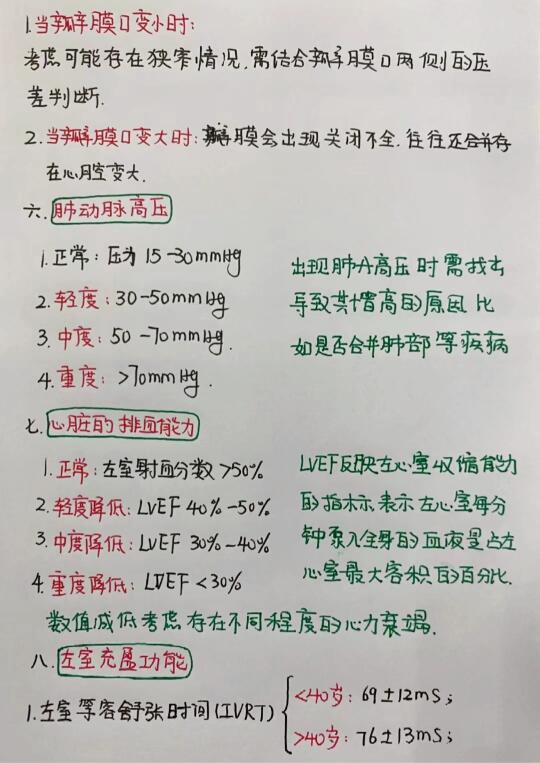 1.当瓣膜口变小时:
考虑可能存在狭窄情况.需结合瓣膜口两侧的压
差判断.
2.当瓣膜口变大时:瓣膜会出现关闭不全.往往还合并存
在心腔变大.
六.肺动脉高压
1.正常:压为15-30mmHg
2.轻度:30-50mmHg
3.中度:50-70mmHg.
4.重度:>70mmHg.
出现肺A高压时需找出
导致其增高的原因比
如是否合并肺部等疾病
七.心脏的排血能力
1.正常:左室射血分数>50%
2.轻度降低:LVEF 40%-50%
3.中度降低:LVEF 30%-40%
4.重度降低:LVEF<30%
LVEF反映左心室收缩能力
的指标.表示左心室每分
钟泵入全身的血液量占左
心室最大容积的百分比.
数值减低考虑存在不同程度的心力衰竭.
八.左室充盈功能
1.左室等容舒张时间(IVRT)
<40岁:69±12mS;
>40岁:76±13mS;